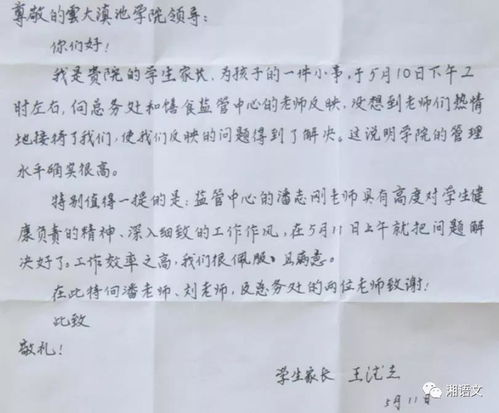 尊敬的云大滇池学院领导：
你们好！
我是贵院的学生家长，为孩子的一件小事，于5月10日下午2
时左右，向总务处和膳食监管中心的老师反映，没想到老师们热情
地接待了我们，使我们反映的问题得到了解决。这说明学院的管理
水平确实很高。
特别值得一提的是：监管中心的潘志刚老师具有高度对学生健
康负责的精神、深入细致的工作作风，在5月11日上午就把问题解
决好了。工作效率之高，我们很佩服、且满意。
在此特向潘老师、刘老师，及总务处的两位老师致谢！
此致
敬礼！
学生家长 王
5月11日
湘语文